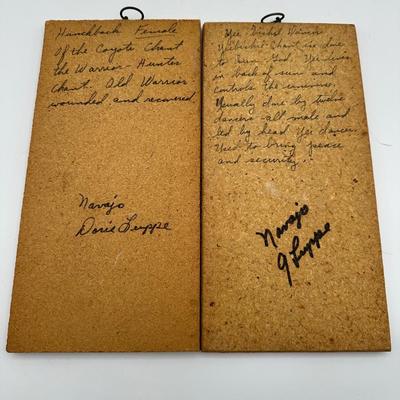 Hunchback Female
Of the Coyote Chant
the Warrior-Hunter
Chant. Old Warrior
wounded and recovered
Navajo
Doris Luppe
Yei Bichai Dancer
Yeibichai Chant is due
to Sun God. Yei lives
in back of sun and
controls the universe.
Usually done by twelve
dancers-all male and
led by head Yei dancer.
Used to bring peace
and security.
Navajo
J Luppe